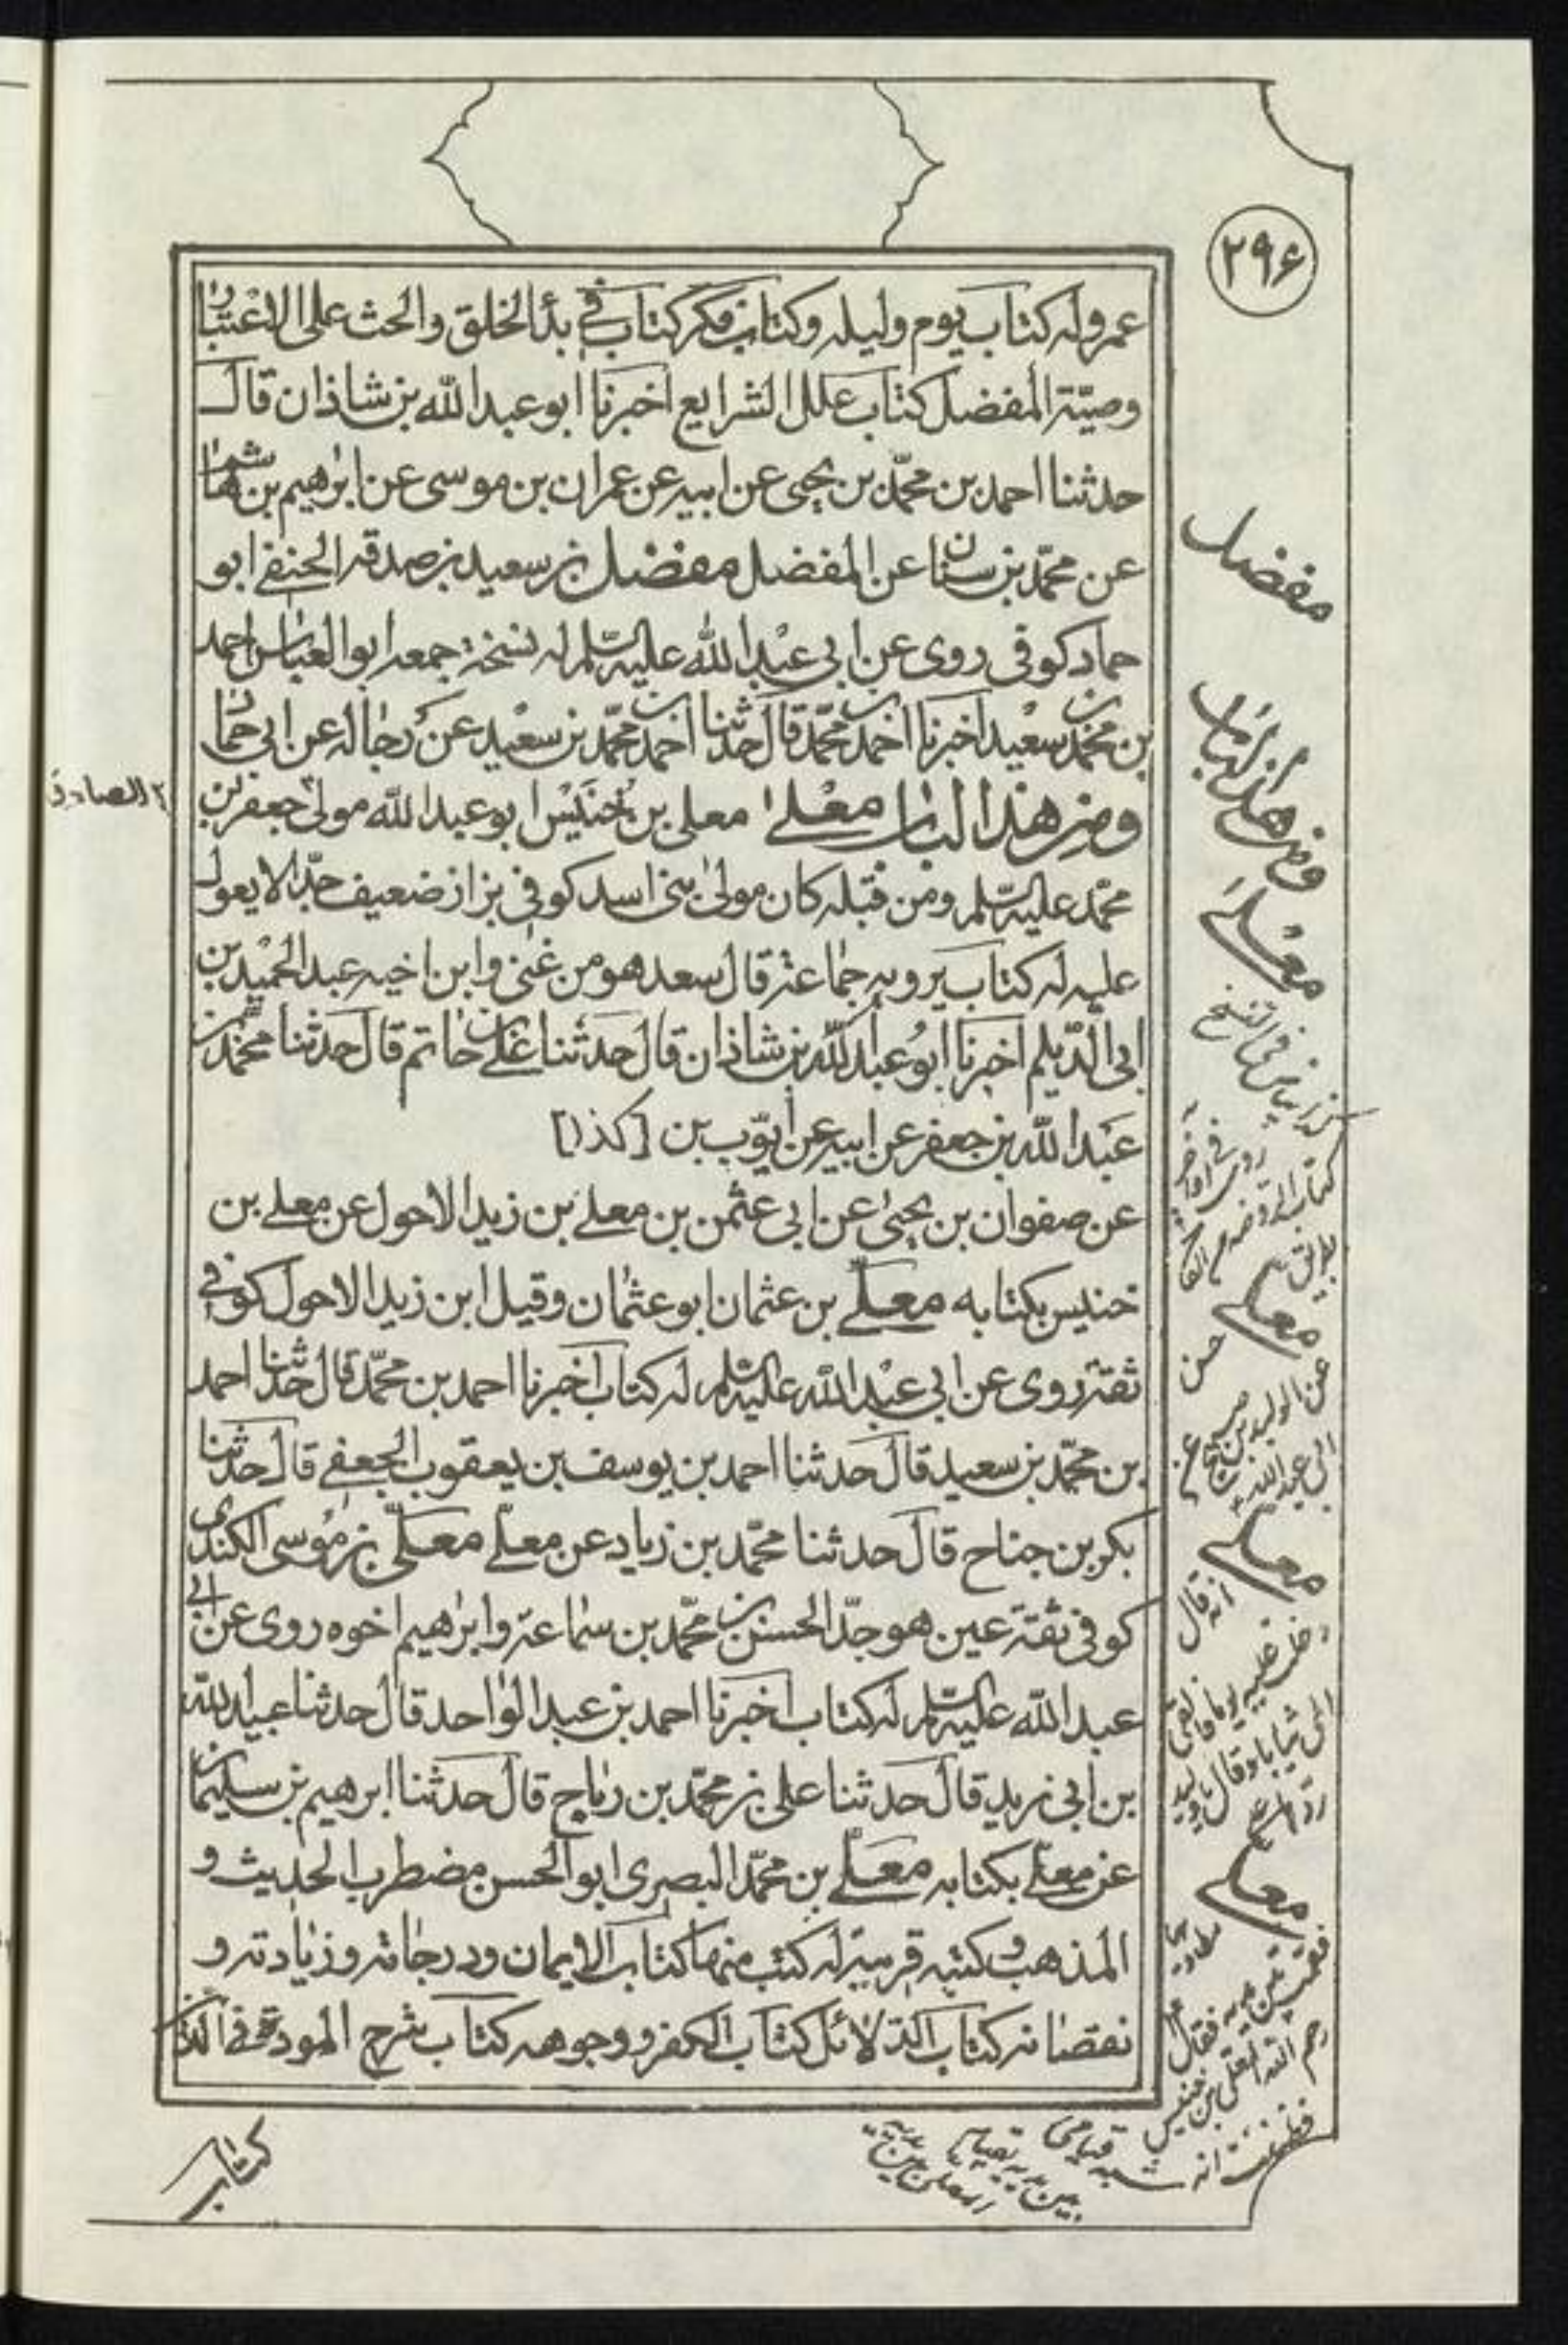 ۲۹۶
عمرو له كتاب يوم وليله وكتاب فكر كتاب في بدأ الخلق والحث على الاعتبار
وصيّة المفضل كتاب علل الشرايع اخبرنا ابو عبد الله بن شاذان قال
حدثنا احمد بن محمّد بن يحيى عن ابيه عن عمران بن موسى عن ابرهيم بن هاشم
عن محمّد بن سنان عن المفضل مفضل بن سعيد بن صدقه الحنفي ابو
حماد كوفى روى عن ابى عبد الله عليه السّلم له نسخة جمعه ابو العباس احمد
بن محمّد بن سعيد اخبرنا احمد بن محمّد قال حدثنا احمد بن محمّد بن سعيد عن رجاله عن ابى حماد
ومن هذا الباب معلى معلى بن خنيس ابو عبد الله مولى جعفر بن
محمّد عليه السّلم ومن قبله كان مولى بنى اسد كوفى بزاز ضعيف جدّا لا يعول
عليه له كتاب يرويه جماعة قال سعد هو من غنى وابن اخيه عبد الحميد بن
ابى الدّيلم اخبرنا ابو عبد الله بن شاذان قال حدثنا على بن حاتم قال حدثنا محمّد بن
عبد الله بن جعفر عن ابيه عن ايوّب بن [كذا]
عن صفوان بن يحيى عن ابى عثمن بن معلى بن زيد الاحول عن معلى بن
خنيس بكتابه معلّى بن عثمان ابو عثمان وقيل ابن زيد الاحول كوفي
ثقة روى عن ابى عبد الله عليه السّلم له كتاب اخبرنا احمد بن محمّد قال حدثنا احمد
بن محمّد بن سعيد قال حدثنا احمد بن يوسف بن يعقوب الجعفي قال حدثنا
بكر بن جناح قال حدثنا محمّد بن زياد عن معلّى معلّى بن موسى الكندى
كوفى ثقة عين هو جدّ الحسن بن محمّد بن سماعة وابرهيم اخوه روى عن ابي
عبد الله عليه السّلم له كتاب اخبرنا احمد بن عبد الواحد قال حدثنا عبيد الله
بن ابى زيد قال حدثنا على بن محمّد بن رباح قال حدثنا ابرهيم بن سليمان
عن معلّى بكتابه معلّى بن محمّد البصرى ابو الحسن مضطرب الحديث و
المذهب وكتبه قريبة له كتب منها كتاب الايمان ودرجاته وزيادته و
نقصانه كتاب الدّلائل كتاب الكفر ووجوهه كتاب شرح المودة في الدّ
كتاب
الصادق
مفضل
ومن هذا الباب
معلى
كتاب الروضة
معلى
حسن
عن الوليد بن صبيح عن
ابى عبد الله
معلى
انه قال
دخلت عليه يوما فالقى
الى ثيابا وقال يا وليد
معلى
فقمت بين يديه فقال
رحم الله المعلى بن خنيس
فظننت انه شبه قيامى
بين يديه بقيام
المعلى بين يديه